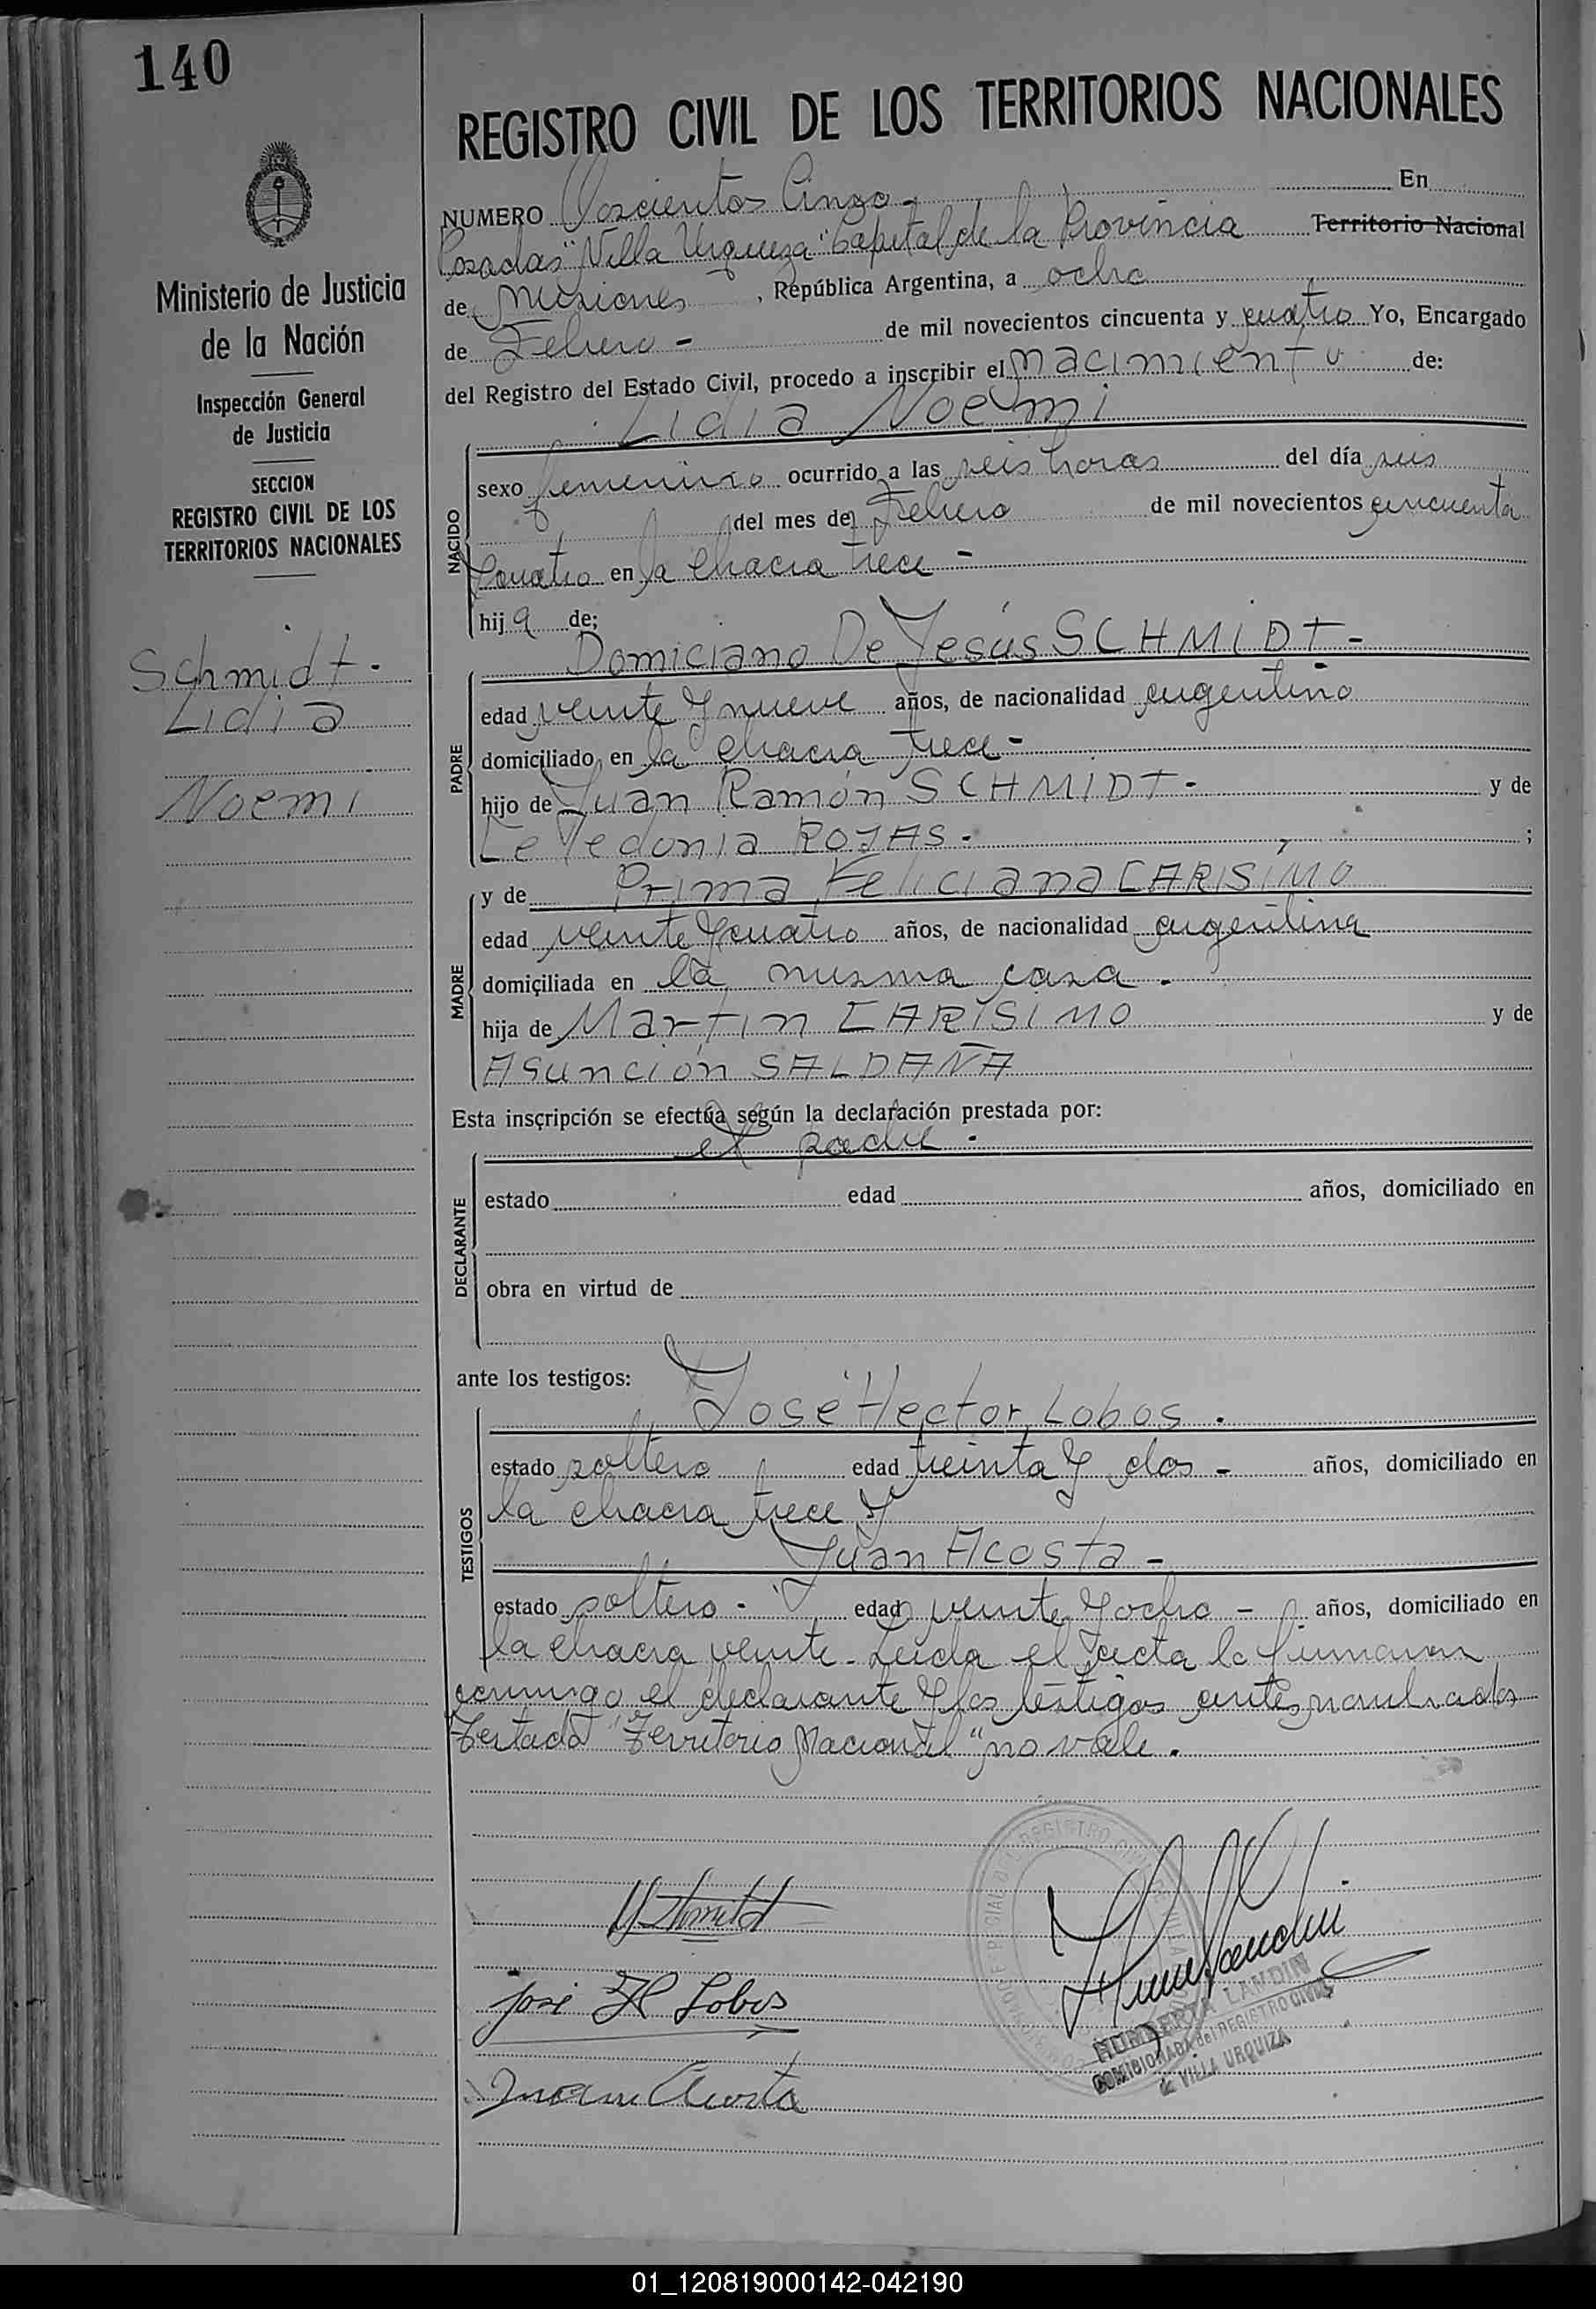 140
REGISTRO CIVIL DE LOS TERRITORIOS NACIONALES
Ministerio de Justicia
de la Nación
Inspección General
de Justicia
SECCION
REGISTRO CIVIL DE LOS
TERRITORIOS NACIONALES
Schmidt.
Lidia
Noemi
NUMERO Doscientos Cinco- En
Posadas "Villa Urquiza" Capital de la Provincia Territorio Nacional
de Misiones, República Argentina, a ocho
de Febrero - de mil novecientos cincuenta y cuatro Yo, Encargado
del Registro del Estado Civil, procedo a inscribir el Nacimiento de:
Lidia Noemi
NACIDO
sexo femenino ocurrido a las seis horas del día seis
del mes de Febrero de mil novecientos cincuenta
y cuatro en la chacra trece -
hija de;
Domiciano De Jesús SCHMIDT-
PADRE
edad veinte y nueve años, de nacionalidad argentino
domiciliado en la chacra trece -
hijo de Juan Ramón SCHMIDT- y de
ROJAS. ;
MADRE
y de Prima Feliciana CARISIMO
edad veinte y cuatro años, de nacionalidad argentina
domiciliada en la misma casa.
hija de Martin CARISIMO y de
Asunción SALDAÑA
Esta inscripción se efectúa según la declaración prestada por:
el padre.
DECLARANTE
estado edad años, domiciliado en
obra en virtud de
ante los testigos:
José Hector Lobos.
TESTIGOS
estado soltero edad treinta y dos - años, domiciliado en
la chacra trece y
Juan Acosta -
estado soltero. edad veinte y ocho - años, domiciliado en
la chacra veinte. Leida el acta la firmaron
conmigo el declarante y los testigos antes nombrados
Testado "Territorio Nacional" no vale.
José H Lobos
Juan Acosta
HUMBERTA LANDINI
COMISIONADA del REGISTRO CIVIL
de VILLA URQUIZA
01_120819000142-042190